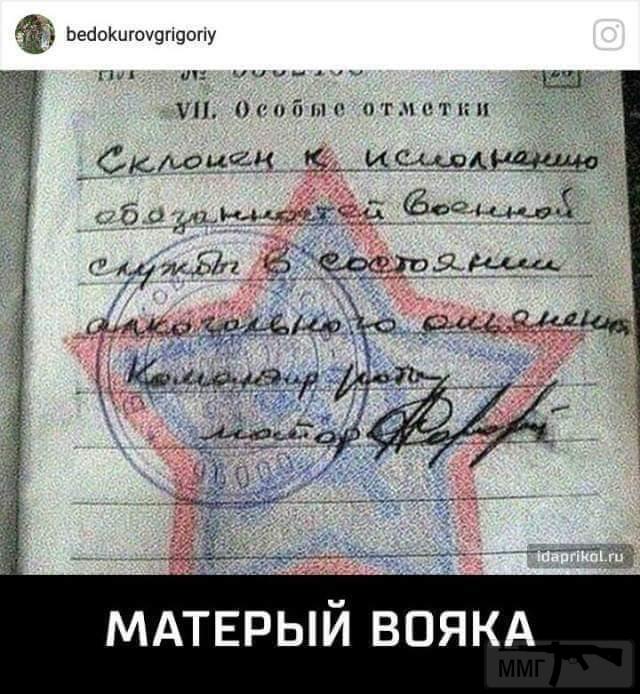 bedokurovgrigoriy
VII. Особые отметки
Склонен к исполнению
обязанностей военной
службы в состоянии
алкогольного опьянения
Командир роты
майор
idaprikol.ru
МАТЕРЫЙ ВОЯКА
ММГ